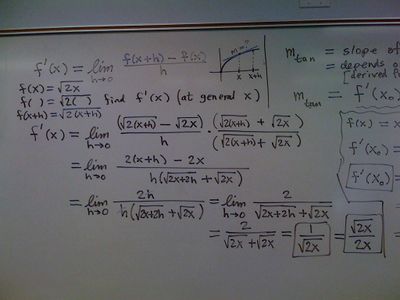 f'(x) = lim h→0 f(x+h) - f(x) / h
m=?
1 x x+h
m tan = slope of
= depends o
[derived f
f(x) = √2x
f( ) = √2( ) find f'(x) (at general x)
m tan = f'(x₀
f(x+h) = √2(x+h)
f'(x) = lim h→0 (√2(x+h) - √2x) / h · (√2(x+h) + √2x) / (√2(x+h) + √2x)
f(x) = x
f'(x₀) =
f'(x₀) =
= lim h→0 2(x+h) - 2x / h(√2x+2h + √2x)
= lim h→0 2h / h(√2x+2h + √2x) = lim h→0 2 / √2x+2h + √2x
= 2 / √2x + √2x = 1 / √2x = √2x / 2x =